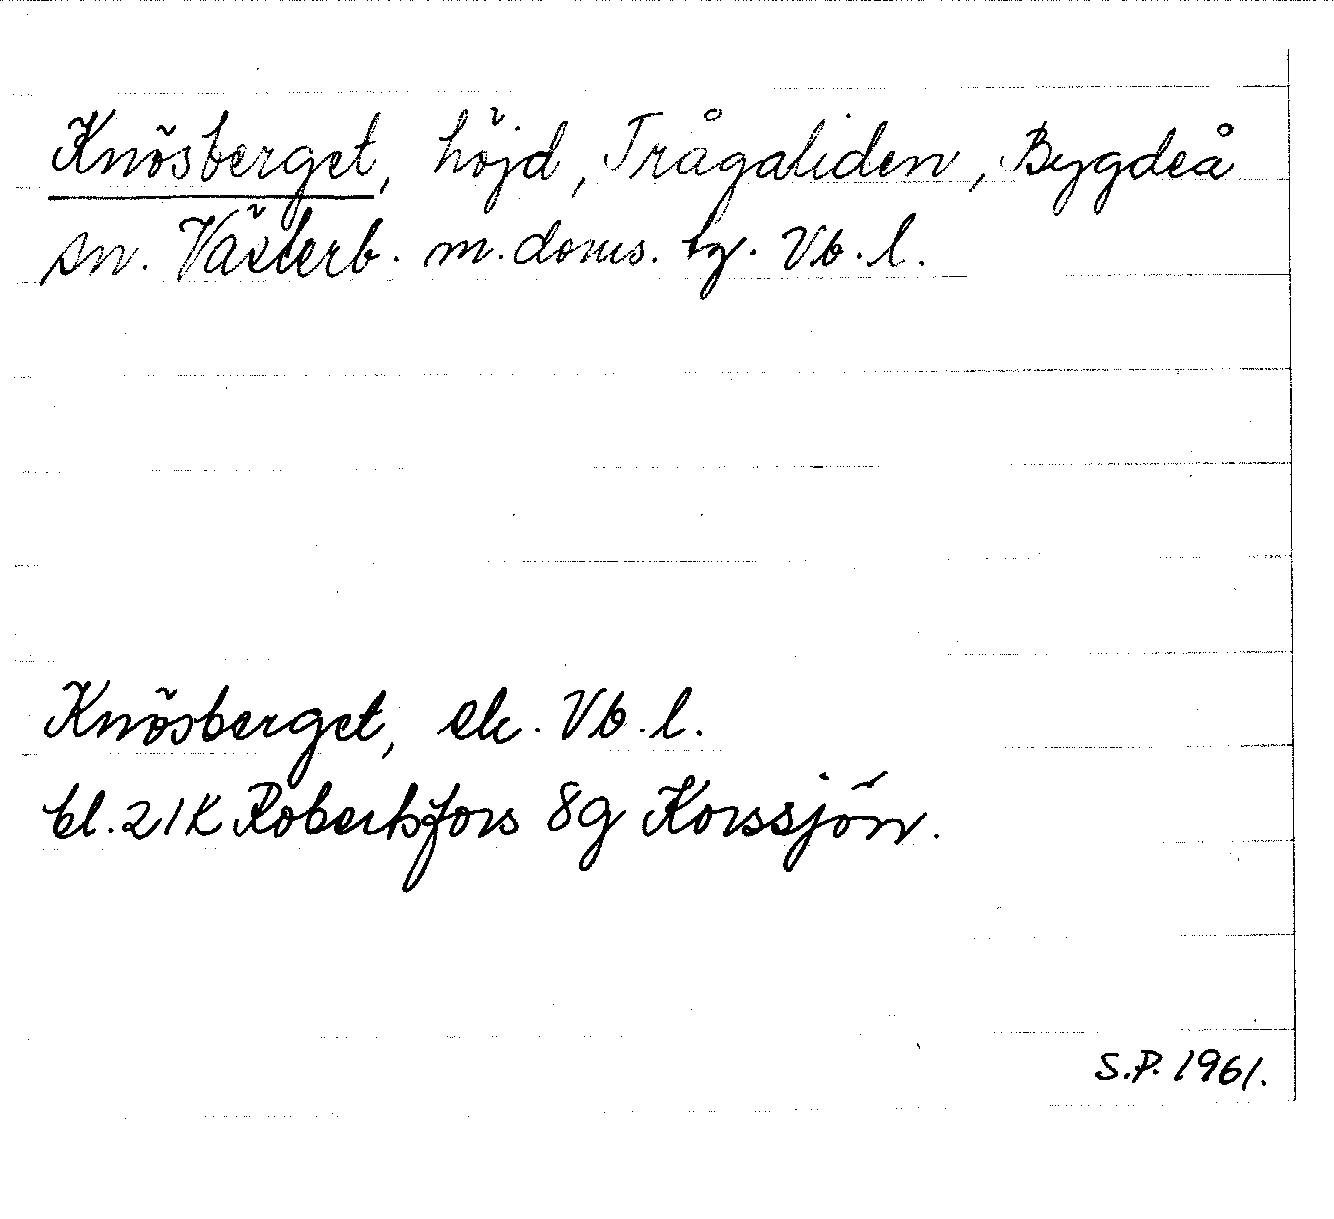 Knösberget, höjd, Trågaliden, Bygdeå
sn. Västerb. m. doms. tg. Vb. l.
Knösberget, ek. Vb. l.
bl. 21K Robertsfors 8g Korssjön.
S.P. 1961.